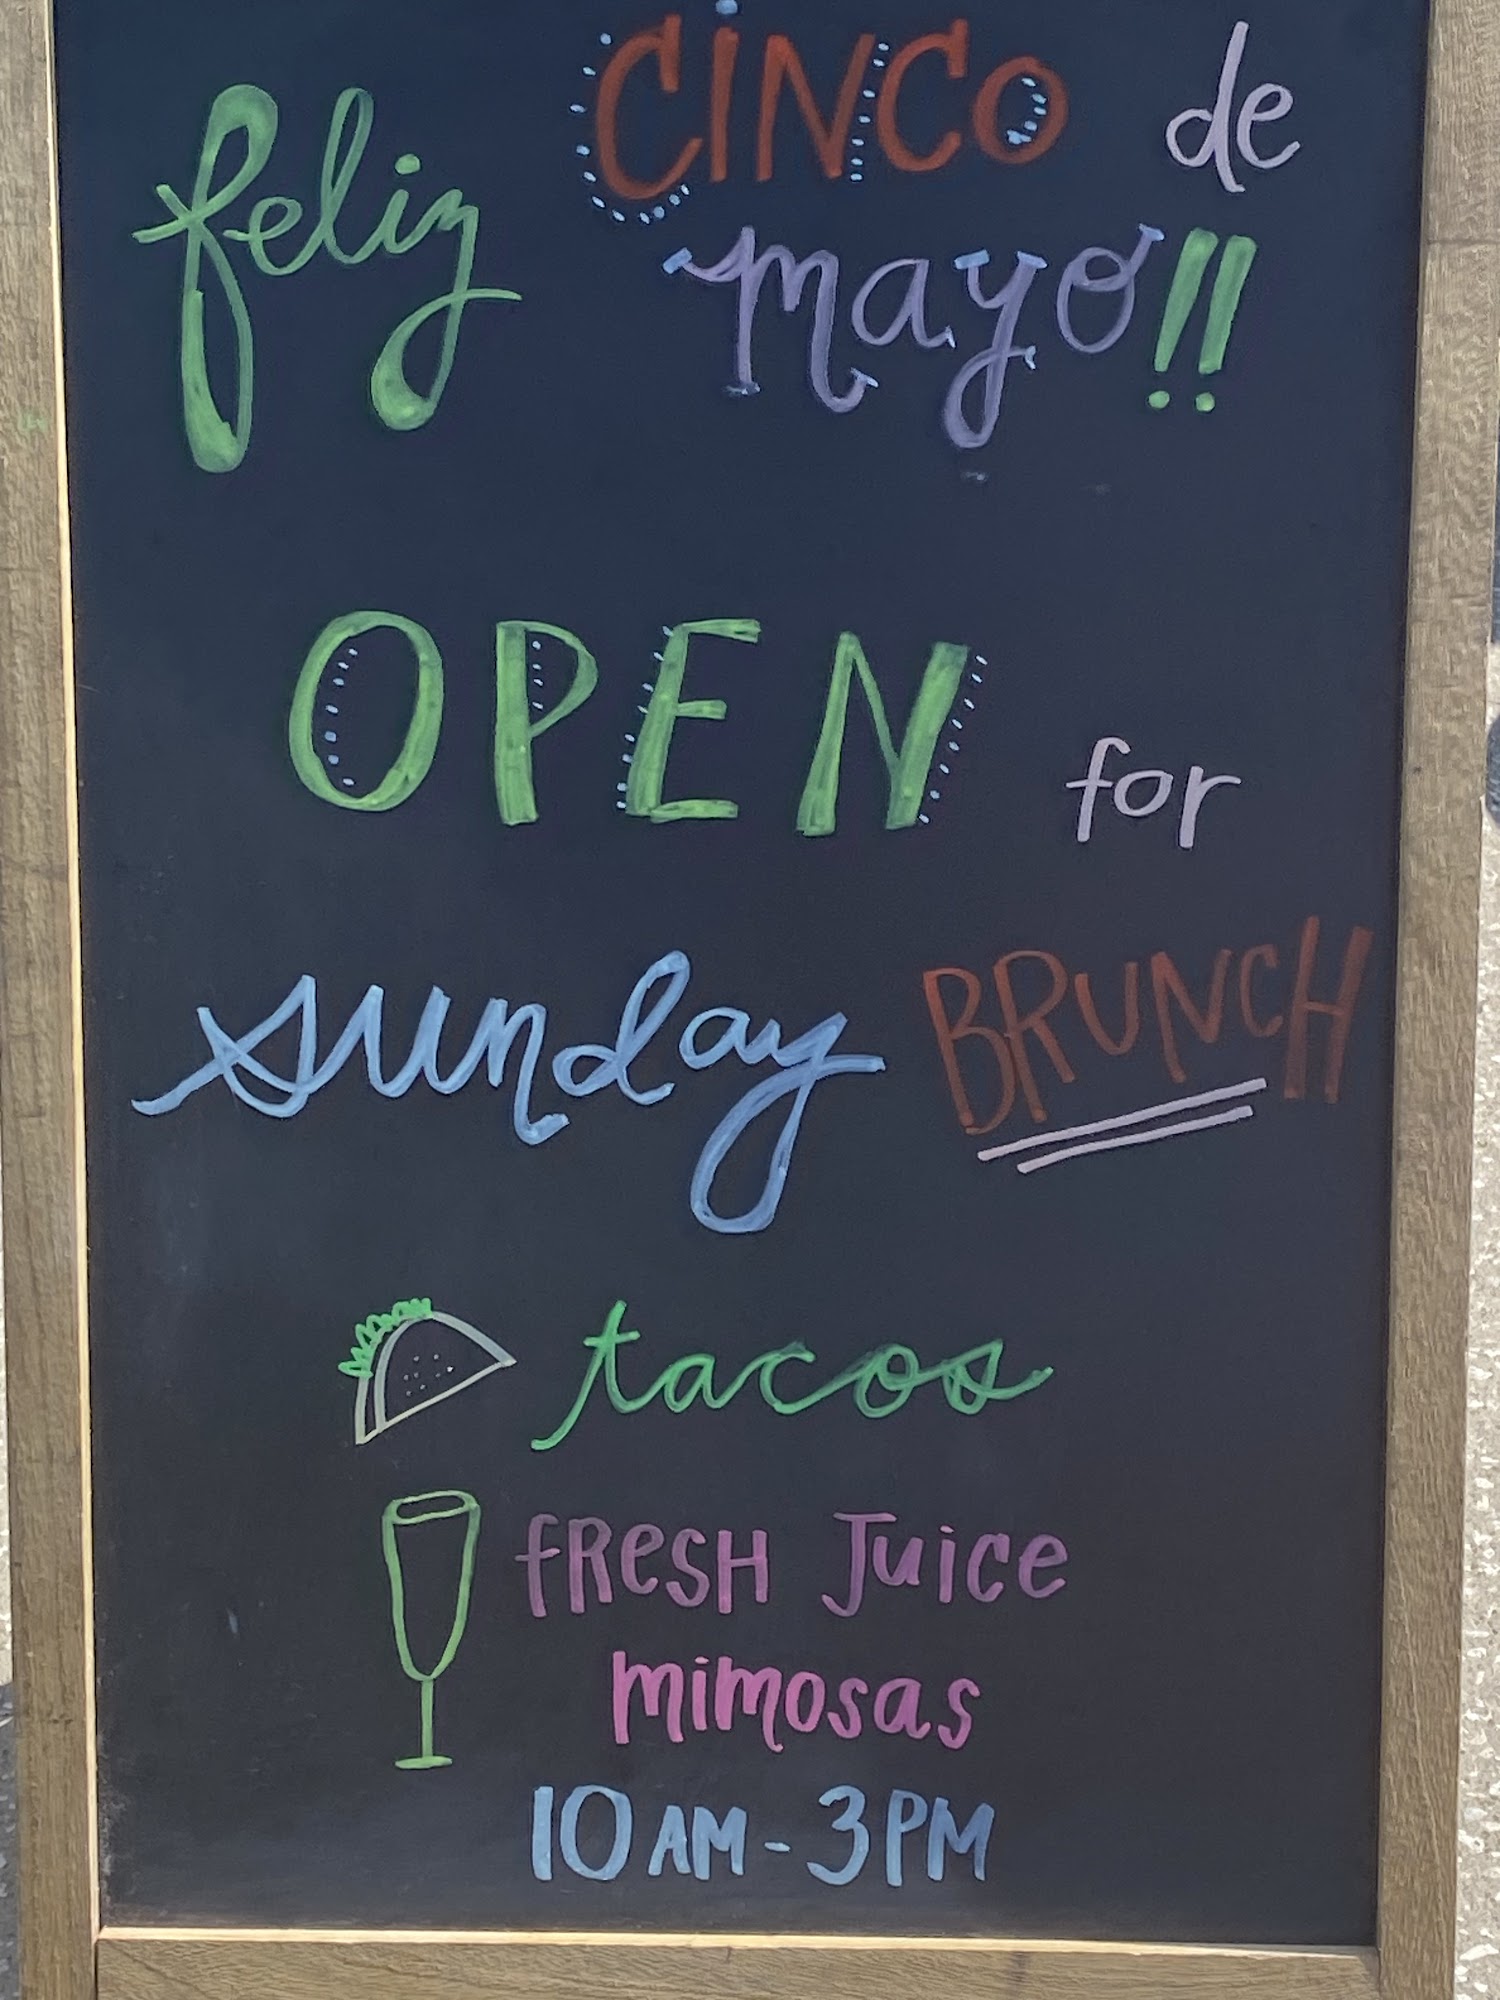 feliz CINCO de
mayo!!
OPEN for
sunday BRUNCH
tacos
fResH Juice
mimosas
10 AM - 3 PM